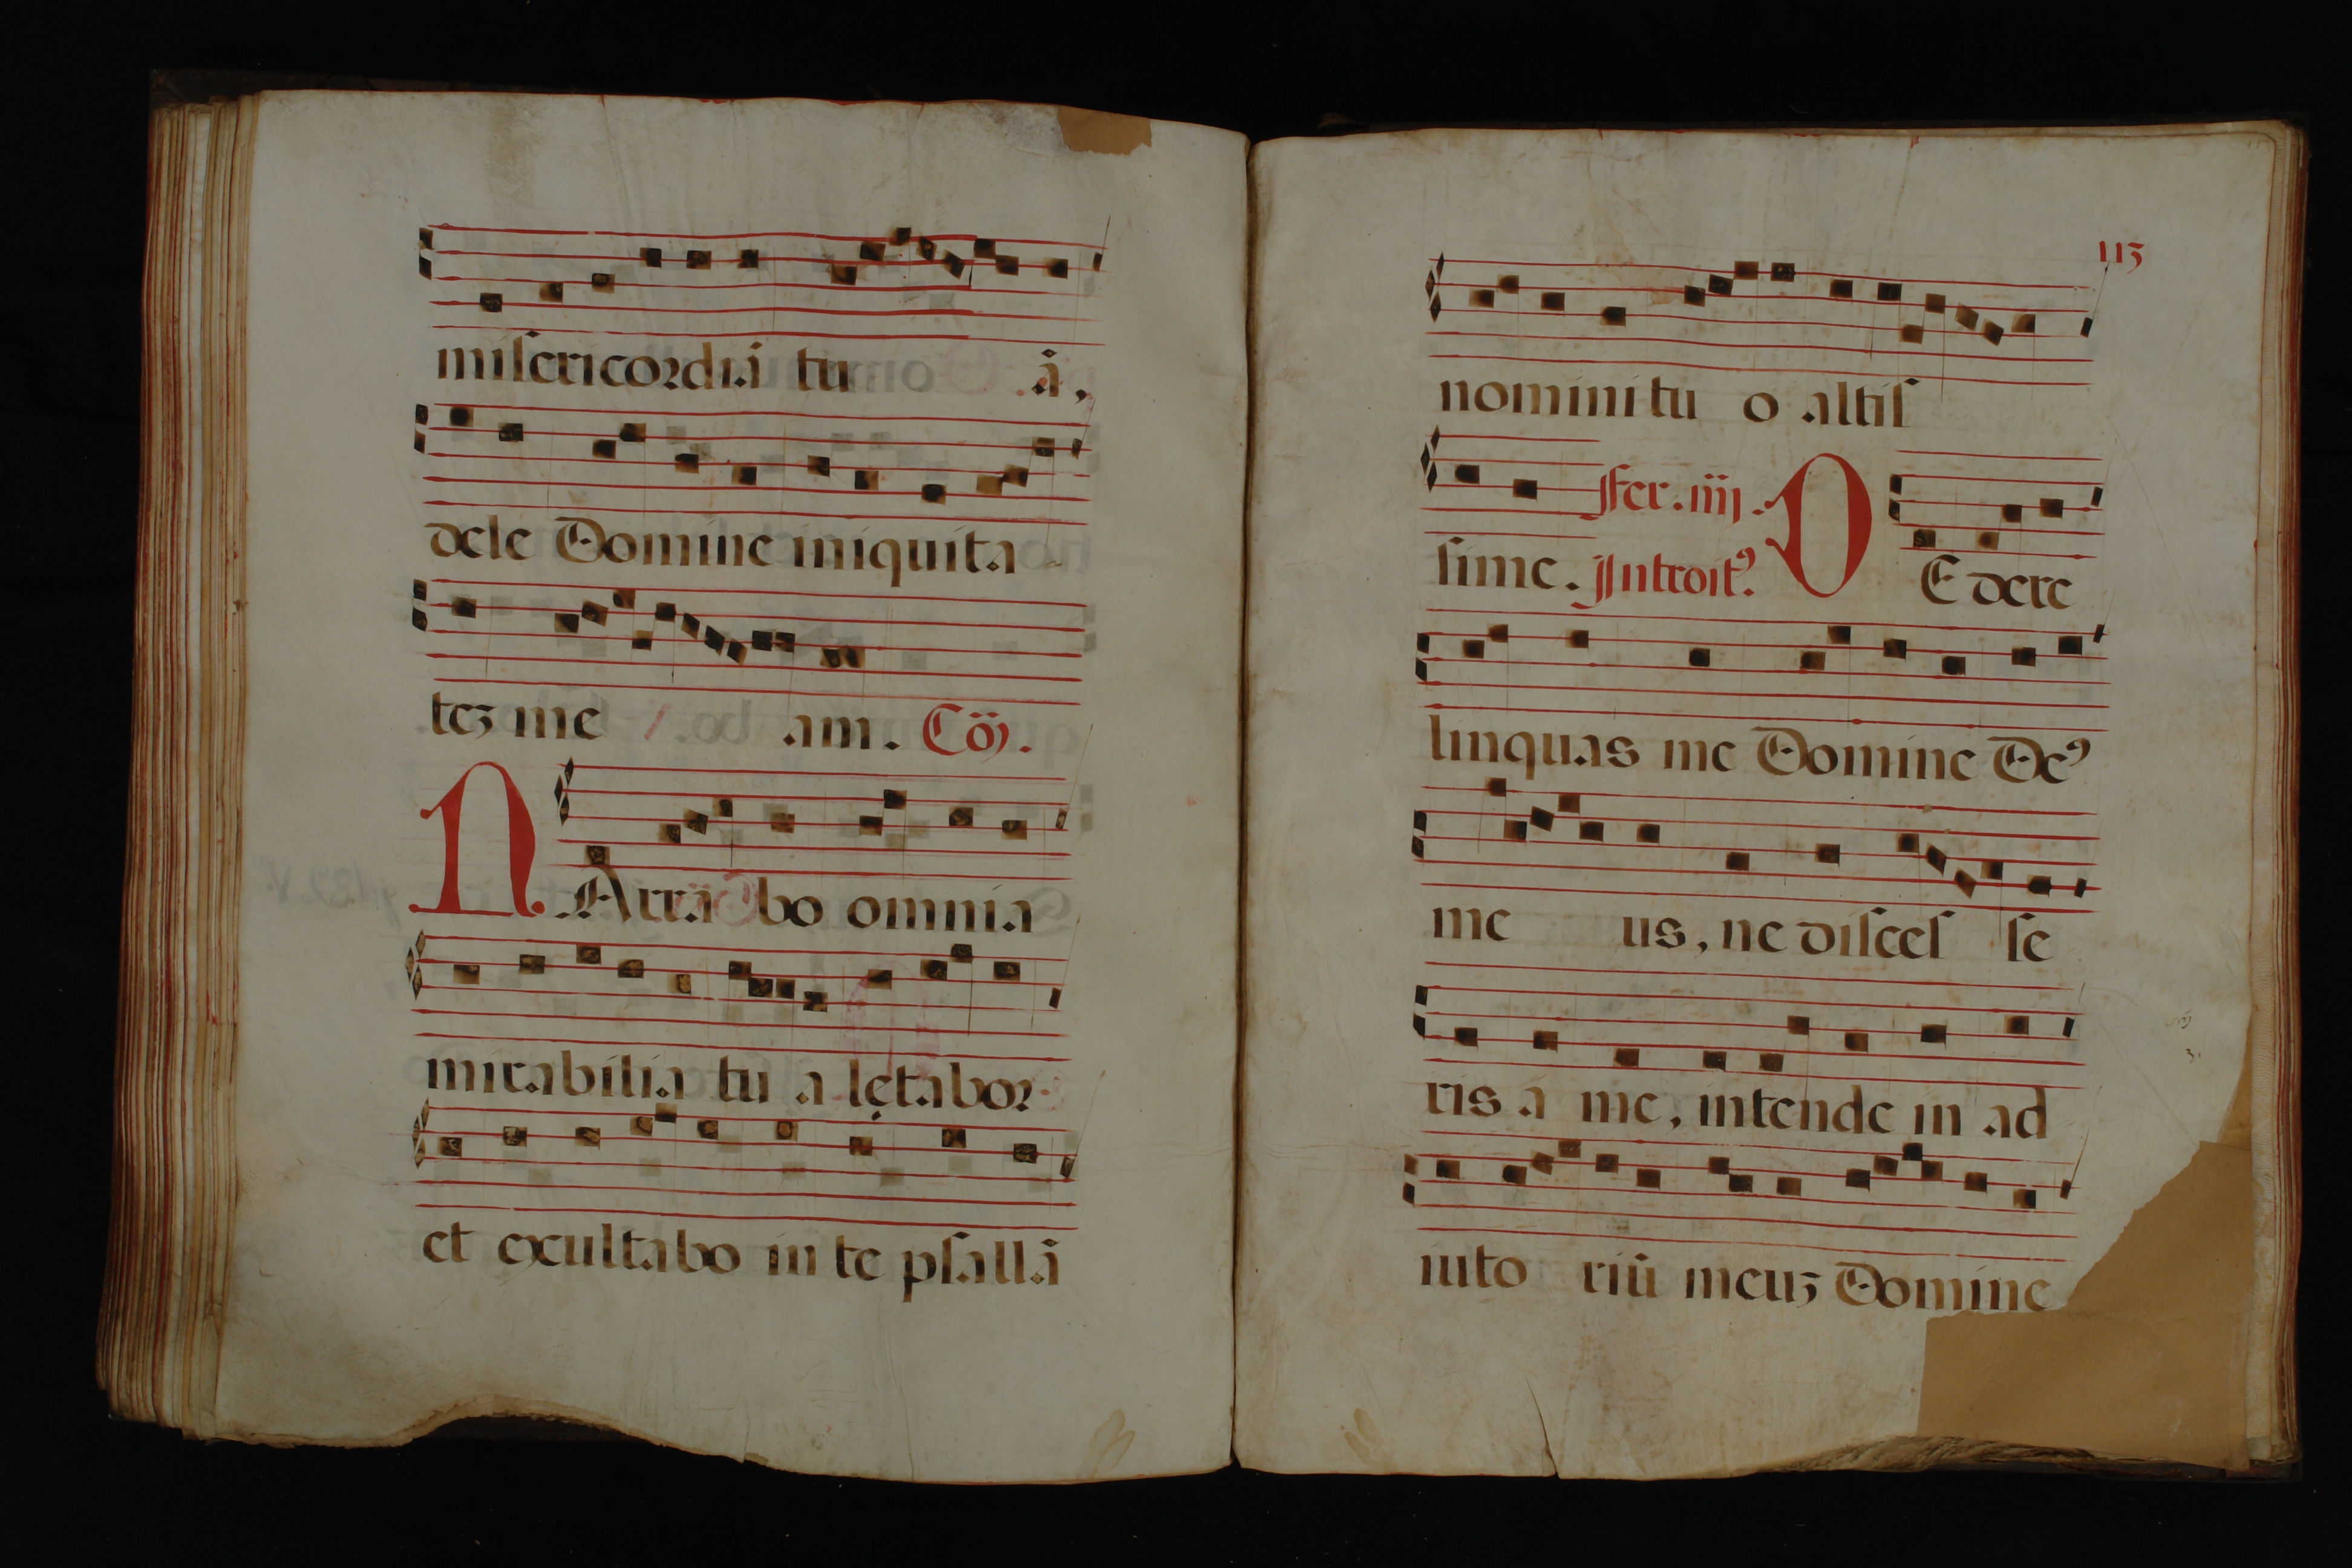 misericordiā tu ā,
dele Domine iniquita
tez me am. Cōȷ.
NArra bo omnia
mirabilia tu a lętabor
et exultabo in te psallā
113
nomini tu o altis
sime. Fer. iiij. Introitꝯ. NE dere
linquas me Domine Deꝯ
me us, ne disces se
ris a me, intende in ad
iuto riū meuz Domine